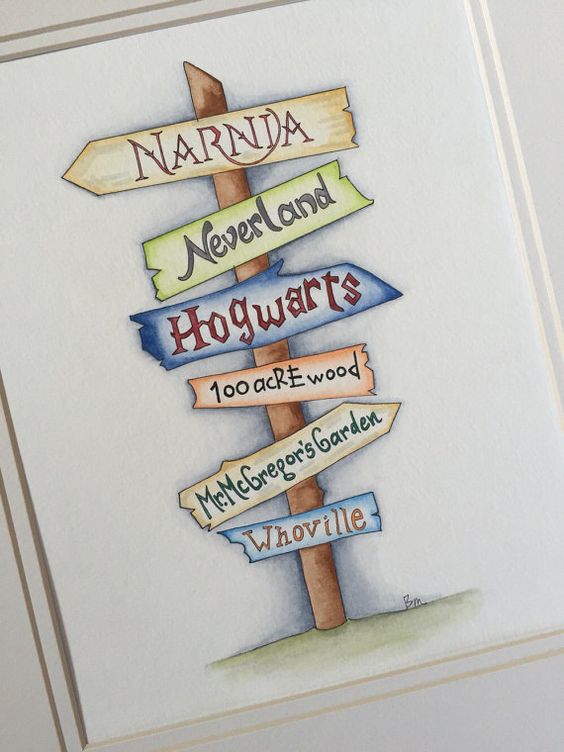 NARNIA
Neverland
Hogwarts
100 acRE wood
Mr. McGregor's Garden
Whoville